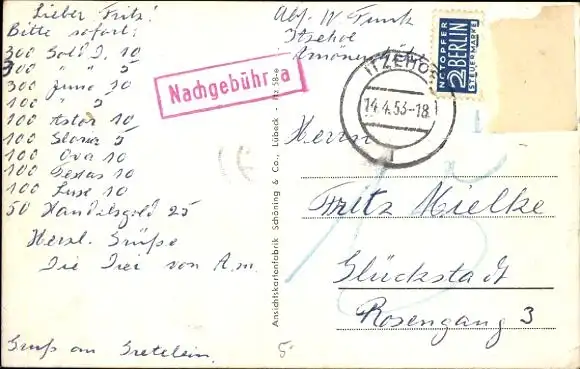 Lieber Fritz!
Bitte sofort:
300 Gold D. 10
300 " " 5
300 Juno 10
100 " 5
100 Astor 10
100 Gloria 5
100 Ova 10
100 Texas 10
100 Luxe 10
50 Handelsgold 25
Herzl. Grüße
Die Drei von A.m.
Gruß an Gretelein.
Nachgebühr a
Ansichtskartenfabrik Schöning & Co., Lübeck
Abs. W Funk
Itzehoe
NOTOPFER
2 BERLIN
STEUERMARKE
ITZEHOE
14.4.53-18
Herrn
Fritz Mielke
Glückstadt
Rosengang 3